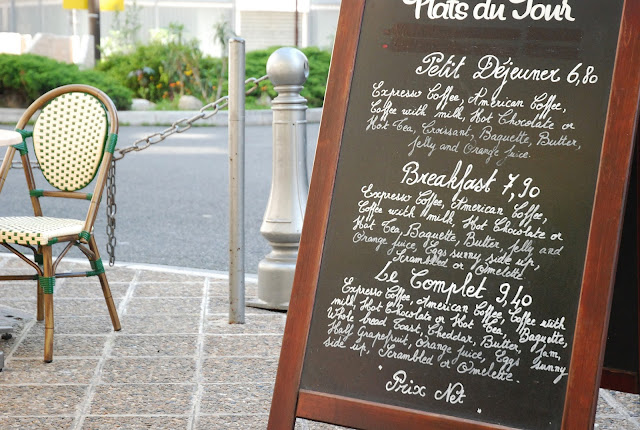 Plats du Jour
Petit Déjeuner 6,80
Expresso Coffee, American Coffee,
Coffee with milk, Hot Chocolate or
Hot Tea, Croissant, Baguette, Butter,
jelly and Orange juice.
Breakfast 7,90
Expresso Coffee, American Coffee,
Coffee with milk, Hot Chocolate or
Hot Tea, Baguette, Butter, jelly and
Orange juice, Eggs sunny side up,
Scrambled or Omelette
Le Complet 9,40
Expresso Coffee, American Coffee, Coffee with
milk, Hot Chocolate or Hot Tea, Baguette,
Whole bread Toast, Cheddar, Butter, Jam,
Half Grapefruit, Orange juice, Eggs sunny
side up, Scrambled or Omelette.
Prix Net